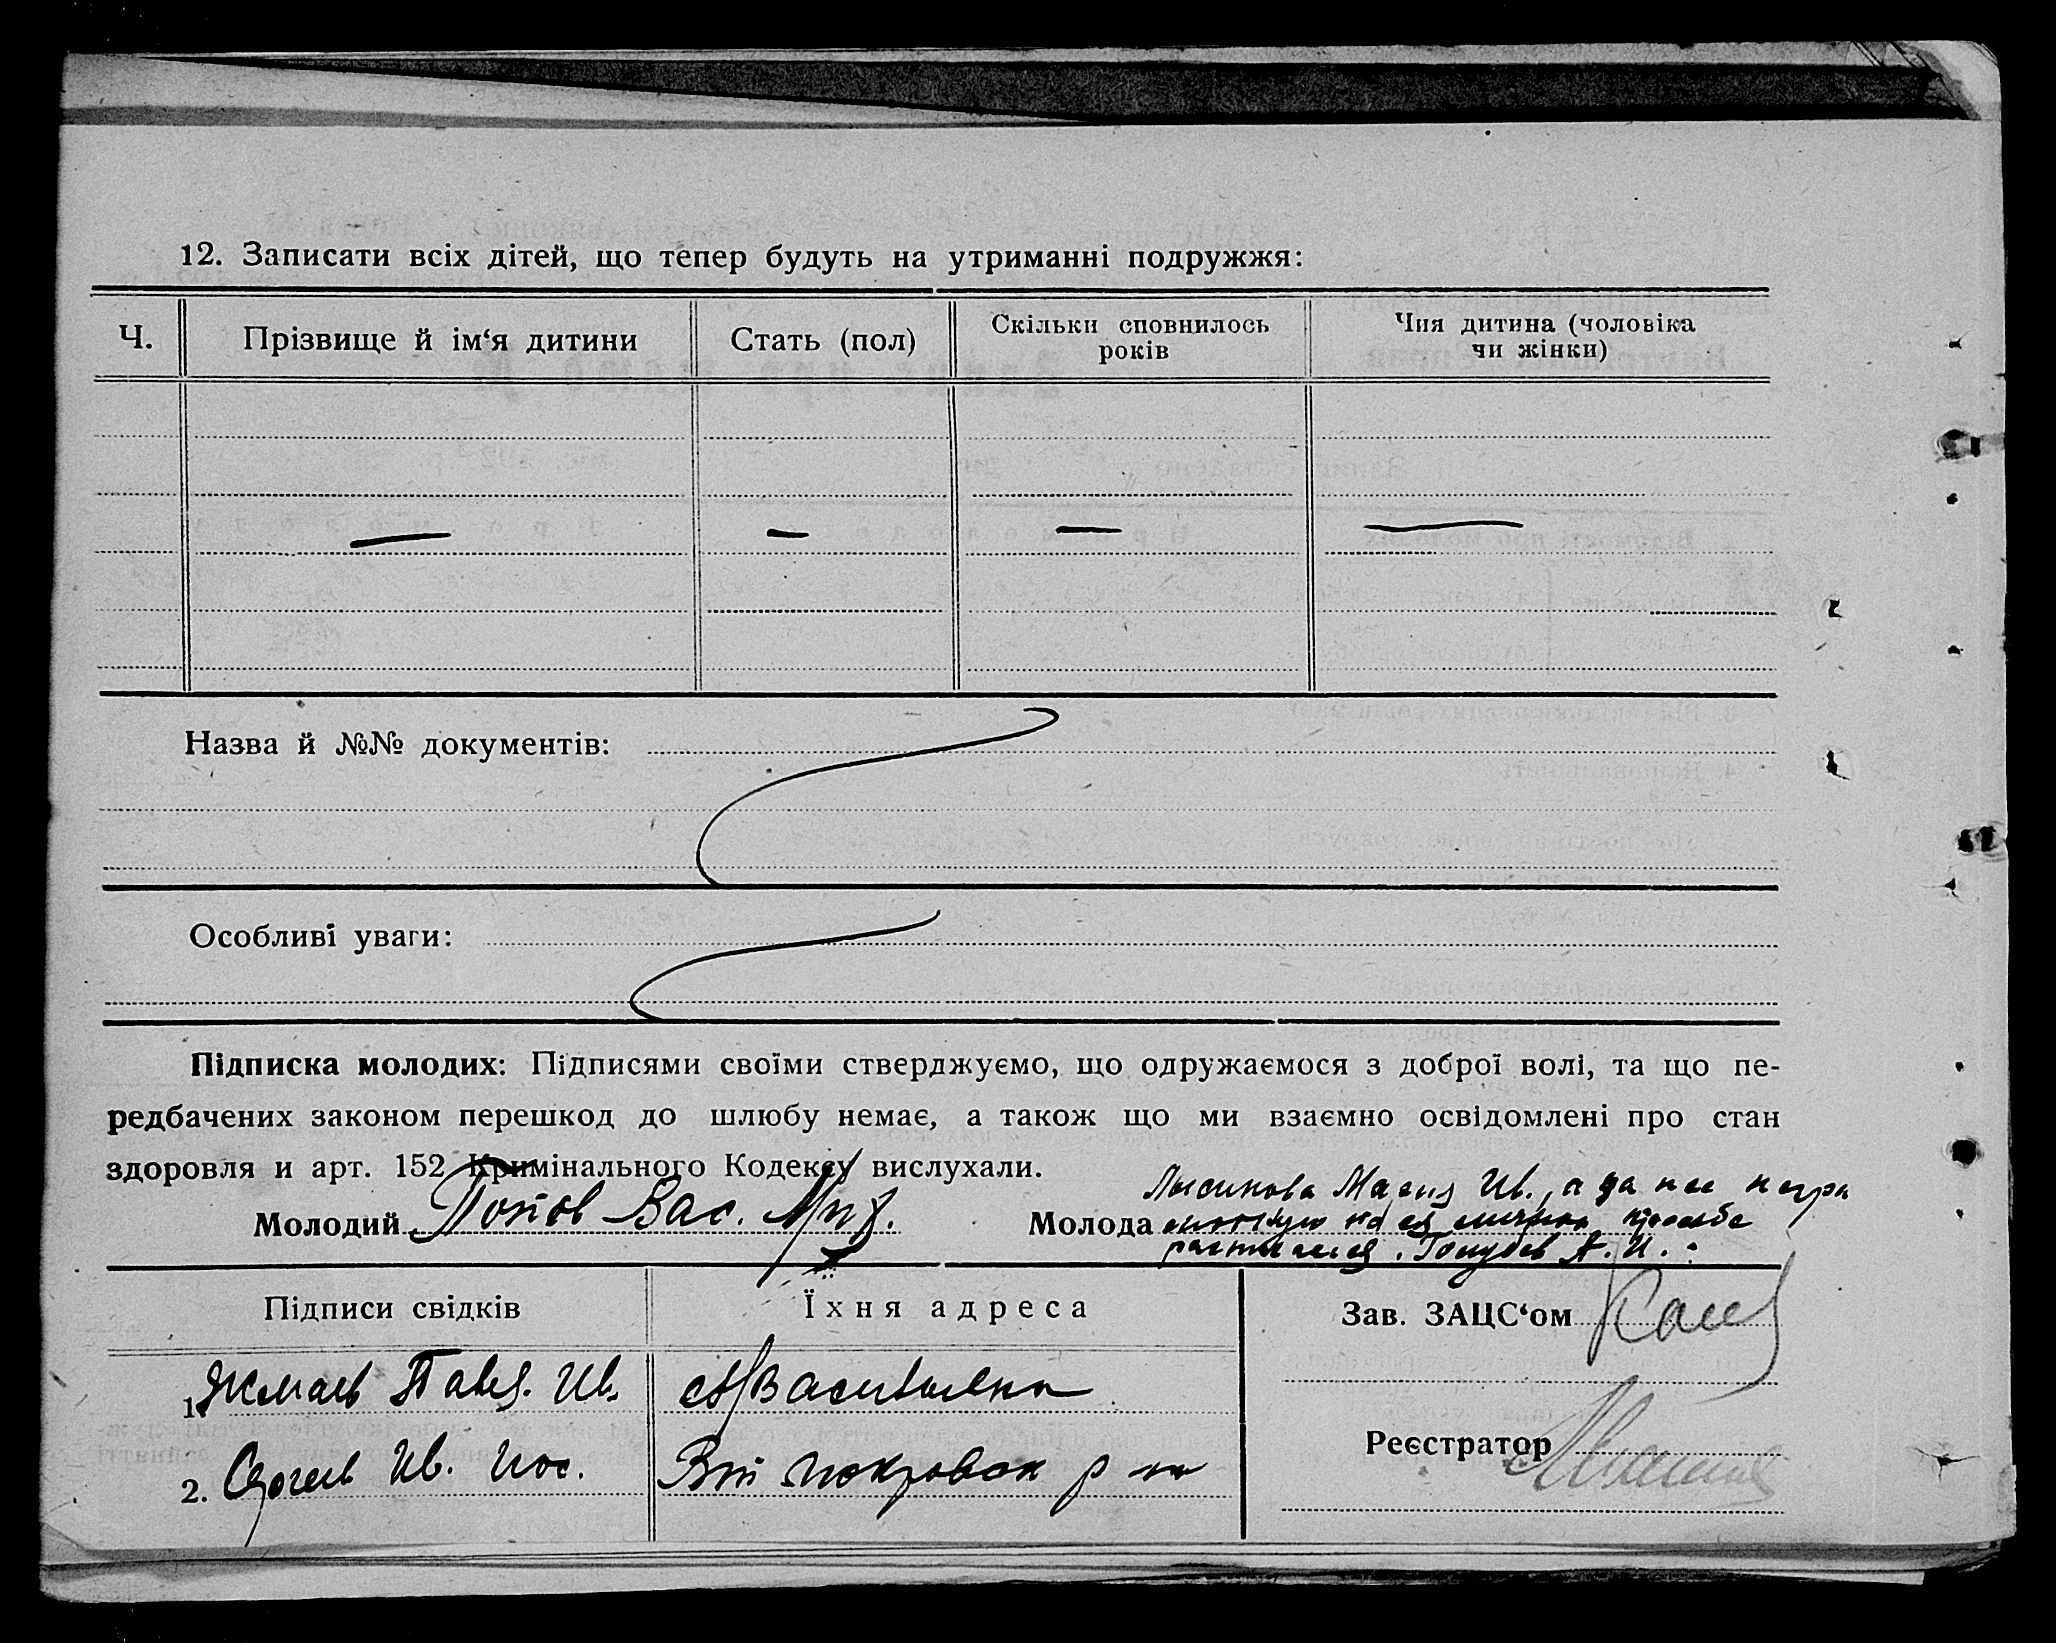 12. Записати всіх дітей, що тепер будуть на утриманні подружжя:
Ч. Прізвище й ім‘я дитини Стать (пол) Скільки сповнилось років Чия дитина (чоловіка чи жінки)
— — — —
Назва й №№ документів:
Особливі уваги:
Підписка молодих: Підписями своїми стверджуємо, що одружаємося з доброї волі, та що пе-
редбачених законом перешкод до шлюбу немає, а також що ми взаємно освідомлені про стан
здоровля и арт. 152 Кримінального Кодексу вислухали.
Молодий Попов Вас. Мих.
Молода Мария Ив., а за нее негра
мотную по ея личной просьбе
расписался. Голубев А. И.
Підписи свідків Їхня адреса
Зав. ЗАЦС‘ом
1. Ив. с/Васильевка
Реєстратор
2. Сергеев Ив. покровск р-на